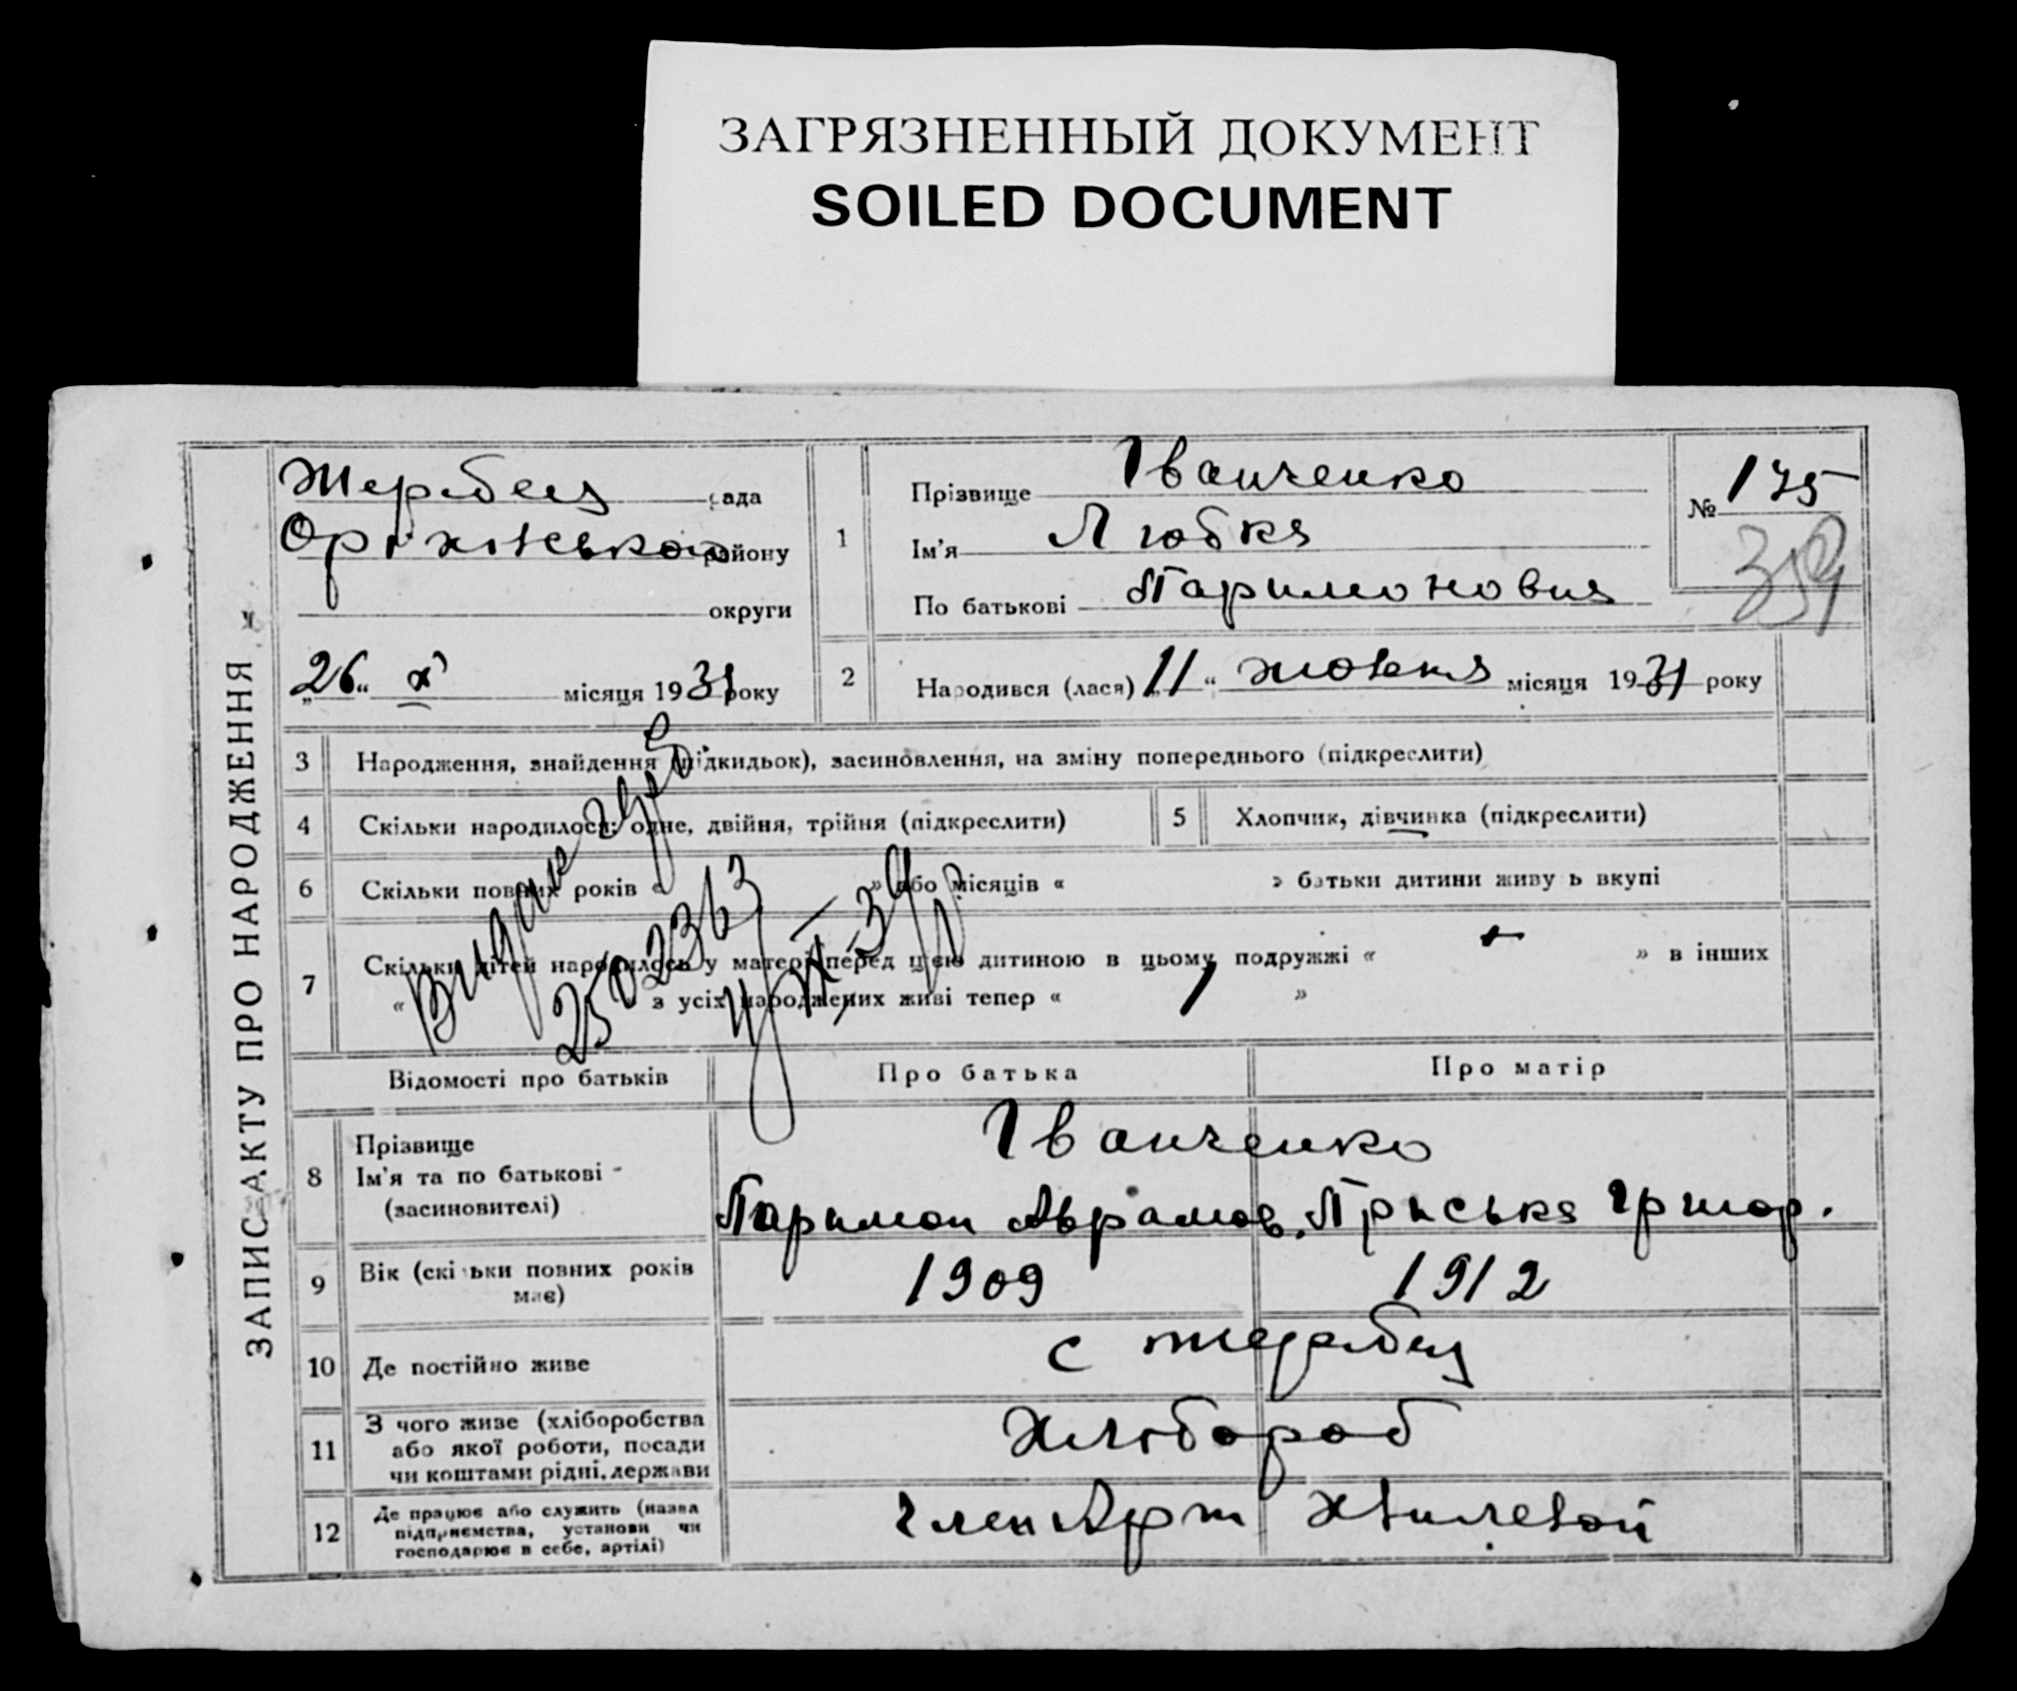 ЗАГРЯЗНЕННЫЙ ДОКУМЕНТ
SOILED DOCUMENT
ЗАПИС АКТУ ПРО НАРОДЖЕННЯ
Жеребець рада
Оріхівського району
округи
„26“ X місяця 1931 року
1
Прізвище Іванченко
Ім'я Любка
По батькові Паримоновна
№ 175
359
2 Народився (лася) „11“ жовтня місяця 1931 року
3 Народження, знайдення (підкидьок), засиновлення, на зміну попереднього (підкреслити)
4 Скільки народилося: одне, двійня, трійня (підкреслити)
5 Хлопчик, дівчинка (підкреслити)
6 Скільки повних років « » або місяців « » батьки дитини живуть вкупі
7 Скільки дітей народилось у матері перед цією дитиною в цьому подружжі « » в інших
« з усіх народжених живі тепер « 1 »
Видано
Відомості про батьків
Про батька
Про матір
8 Прізвище
Ім'я та по батькові
(засиновителі)
Іванченко
Паримон Аврамов. Пріська Григор.
9 Вік (скільки повних років
має)
1909
1912
10 Де постійно живе
с Жеребец
11 З чого живе (хліборобства
або якої роботи, посади
чи коштами рідні, держави
Хлібороб
12 Де працює або служить (назва
підприємства, установи чи
господарює в себе, артілі)
член Арт